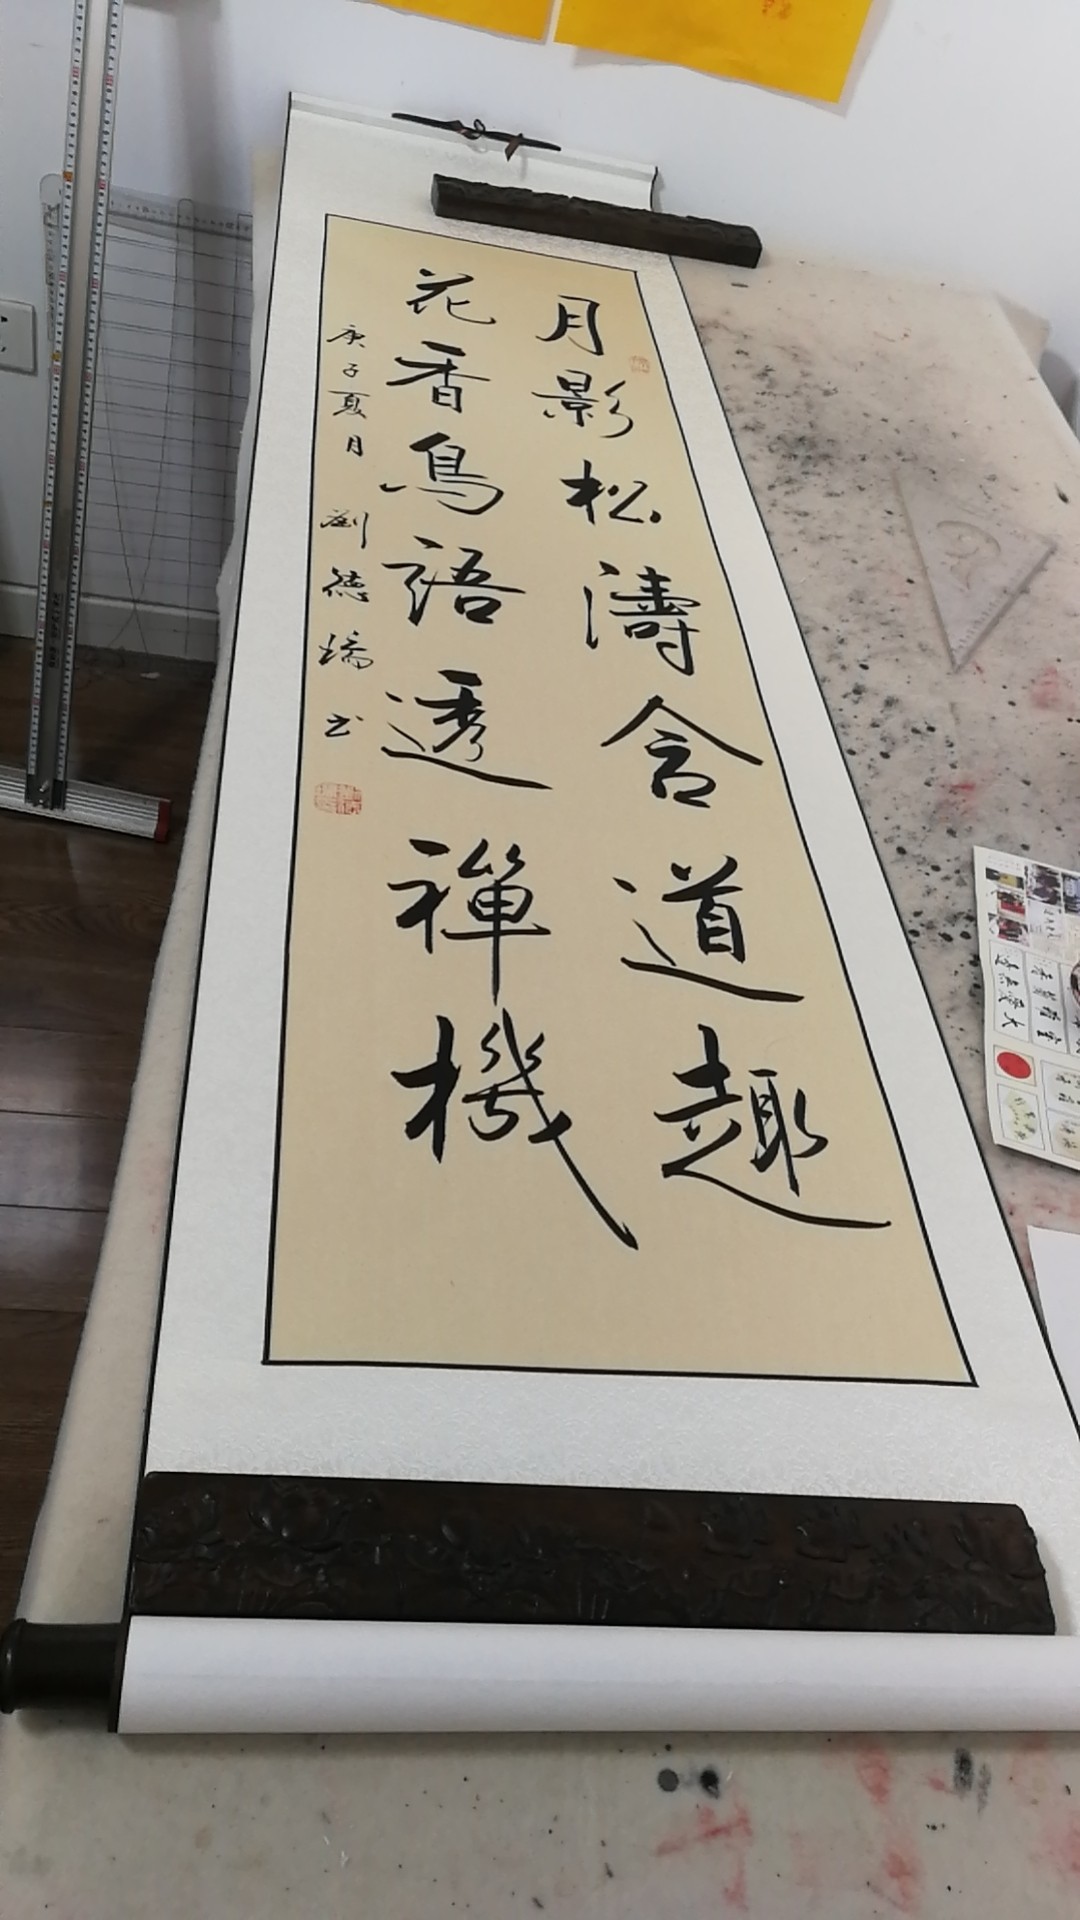 月影松濤含道趣
花香鳥語透禪機
庚子夏月 劉德瑞书